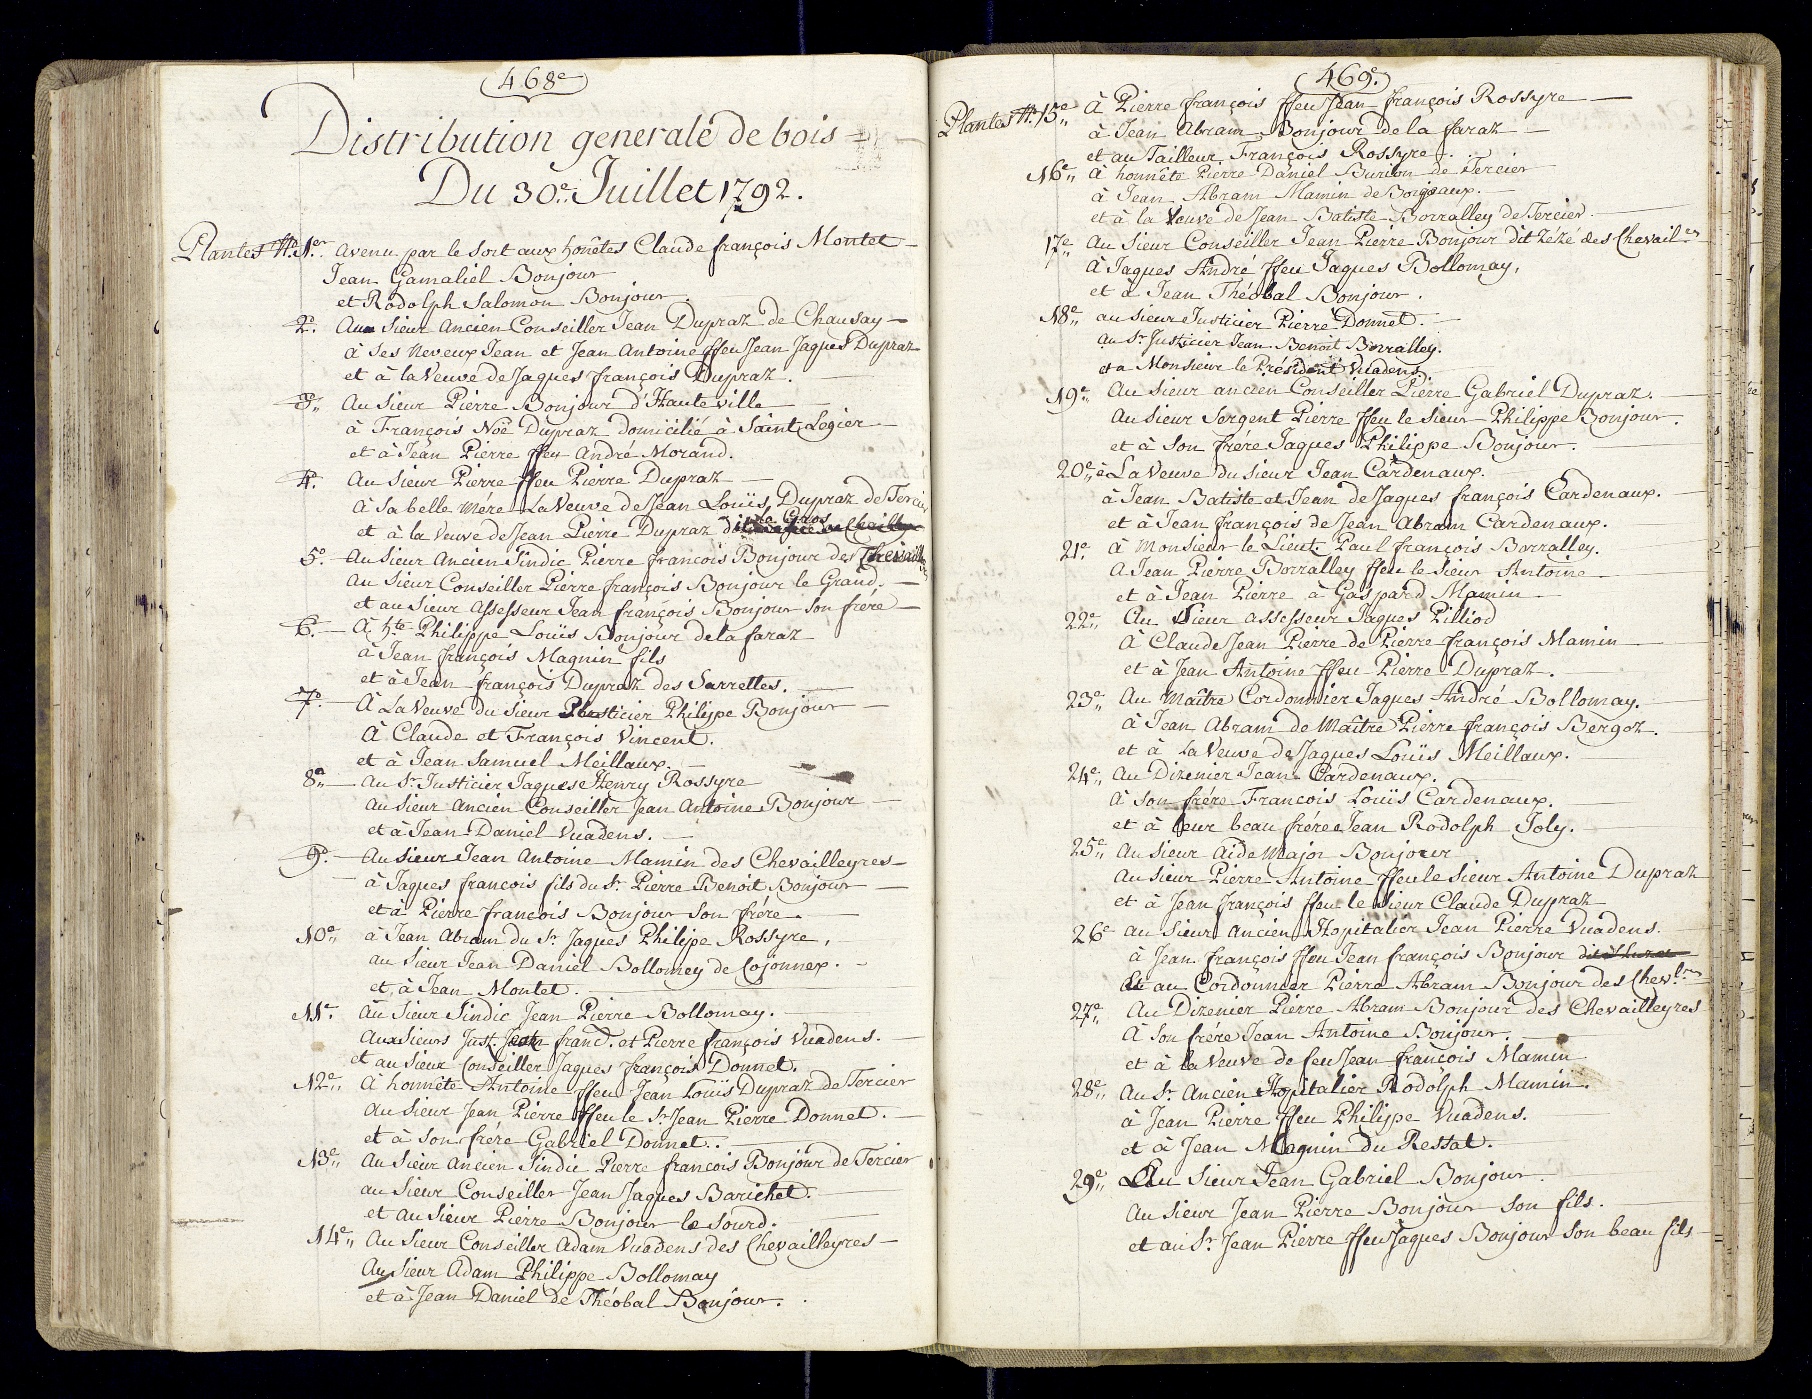 468e
Distribution generale de bois
Du 30e. Juillet 1792.
Plantes No. 1er. avenu par le sort aux honêtes Claude françois Montet
Jean Gamaliel Bonjour
et Rodolph Salomon Bonjour.
2e. Au Sieur Ancien Conseiller Jean Dupraz de Chausay
à Ses Neveux Jean et Jean Antoine ffeu Jean Jaques Dupraz
et à la Veuve de Jaques françois Dupraz.
3e. Au Sieur Pierre Bonjour d'Hauteville
à François Noë Dupraz domicilié à Saint Légier
et à Jean Pierre ffeu André Morand.
4e. Au Sieur Pierre ffeu Pierre Dupraz
à Sa belle mére La Veuve de Jean Louïs Dupraz de Tercier
et à la Veuve de Jean Pierre Dupraz dit le Gros
5e. Au Sieur Ancien Sindic Pierre francois Bonjour des Chevaill
au Sieur Conseiller Pierre françois Bonjour le Grand.
et au Sieur Assesseur Jean françois Bonjour son frére
6. A hte. Philippe Louïs Bonjour de la faraz
à Jean françois Magnin fils
et à Jean françois Dupraz des Sarrettes.
7e. À La Veuve du Sieur Justicier Philippe Bonjour
À Claude et François Vincent.
et à Jean Samuel Meillaux.
8e. Au Sr. Justicier Jaques Henry Rossyre
au Sieur Ancien Conseiller Jean Antoine Bonjour
et à Jean Daniel Vuadens.
9e. Au Sieur Jean Antoine Mamin des Chevailleyres
à Jaques francois fils du Sr. Pierre Benoit Bonjour
et à Pierre francois Bonjour Son frére
10e. à Jean Abram du Sr. Jaques Philippe Rossyre,
au Sieur Jean Daniel Bollomey de Cojonnex.
et à Jean Montet.
11e. Au Sieur Sindic Jean Pierre Bollomay.
Aux Sieurs Just. Jean franc. et Pierre françois Vuadens.
et au Sieur Conseiller Jaques françois Donnet.
12e. A honnête Antoine ffeu Jean Louïs Dupraz de Tercier
Au Sieur Jean Pierre ffeu le Sr. Jean Pierre Donnet.
et à Son frére Gabriel Donnet.
13e. Au Sieur Ancien Sindic Pierre françois Bonjour de Tercier
au Sieur Conseiller Jean Jaques Barichet.
et Au Sieur Pierre Bonjour le Sourd.
14e. Au Sieur Conseiller Adam Vuadens des Chevailleyres
Au Sieur Adam Philippe Bollomay
et à Jean Daniel de Théobal Bonjour.
469e.
Plantes No. 15e. À Pierre françois ffeu Jean françois Rossyre
à Jean Abram Bonjour de la faraz
et au Tailleur François Rossyre.
16e. à honnête Pierre Daniel Burion de Tercier
à Jean Abram Mamin de Borjeaux.
et à la Veuve de Jean Batiste Borralley de Tercier.
17e. Au Sieur Conseiller Jean Pierre Bonjour dit Zézé des Chevailes
à Jaques André ffeu Jaques Bollomay,
et à Jean Théobal Bonjour.
18e. au Sieur Justicier Pierre Donnet.
Au Sr. Justicier Jean Benoit Borralley.
et à Monsieur le Président Vuadens
19e. Au Sieur ancien Conseiller Pierre Gabriel Dupraz.
Au Sieur Sorgent Pierre ffeu le Sieur Philippe Bonjour.
et à Son frére Jaques Philippe Bonjour.
20e. à La Veuve du Sieur Jean Cardenaux.
à Jean Batiste et Jean de Jaques françois Cardenaux.
et à Jean françois de Jean Abram Cardenaux.
21e. à Monsieur le Lieut. Paul françois Borralley.
A Jean Pierre Borralley ffeu le Sieur Antoine
et à Jean Pierre à Gaspard Mamin
22e. Au Sieur assesseur Jaques Pilliod
À Claude Jean Pierre de Pierre françois Mamin
et à Jean Antoine ffeu Pierre Dupraz.
23e. Au Maître Cordonnier Jaques André Bollomay.
à Jean Abram de Maître Pierre françois Bergoz.
et à La Veuve de Jaques Louïs Meillaux.
24e. au Dizenier Jean Cardenaux.
à Son frére François Louïs Cardenaux.
et à leur beau frére Jean Rodolph Joly.
25e. Au Sieur Aide Major Bonjour
Au Sieur Pierre Antoine ffeu le Sieur Antoine Dupraz
et à Jean françois ffeu le Sieur Claude Dupraz
26e au Sieur Ancien Hopitalier Jean Pierre Vuadens.
à Jean françois ffeu Jean françois Bonjour
Et au Cordonnier Pierre Abram Bonjour des Chevlres
27e. Au Dizenier Pierre Abram Bonjour des Chevailleyres
À Son frére Jean Antoine Bonjour.
et à la Veuve de feu Jean françois Mamin
28e. Au Sr. Ancien Hopitalier Rodolph Mamin.
à Jean Pierre ffeu Philippe Vuadens.
et à Jean Magnin du Restat.
29e. Au Sieur Jean Gabriel Bonjour.
Au Sieur Jean Pierre Bonjour Son fils.
et au Sr. Jean Pierre ffeu Jaques Bonjour Son beau fils